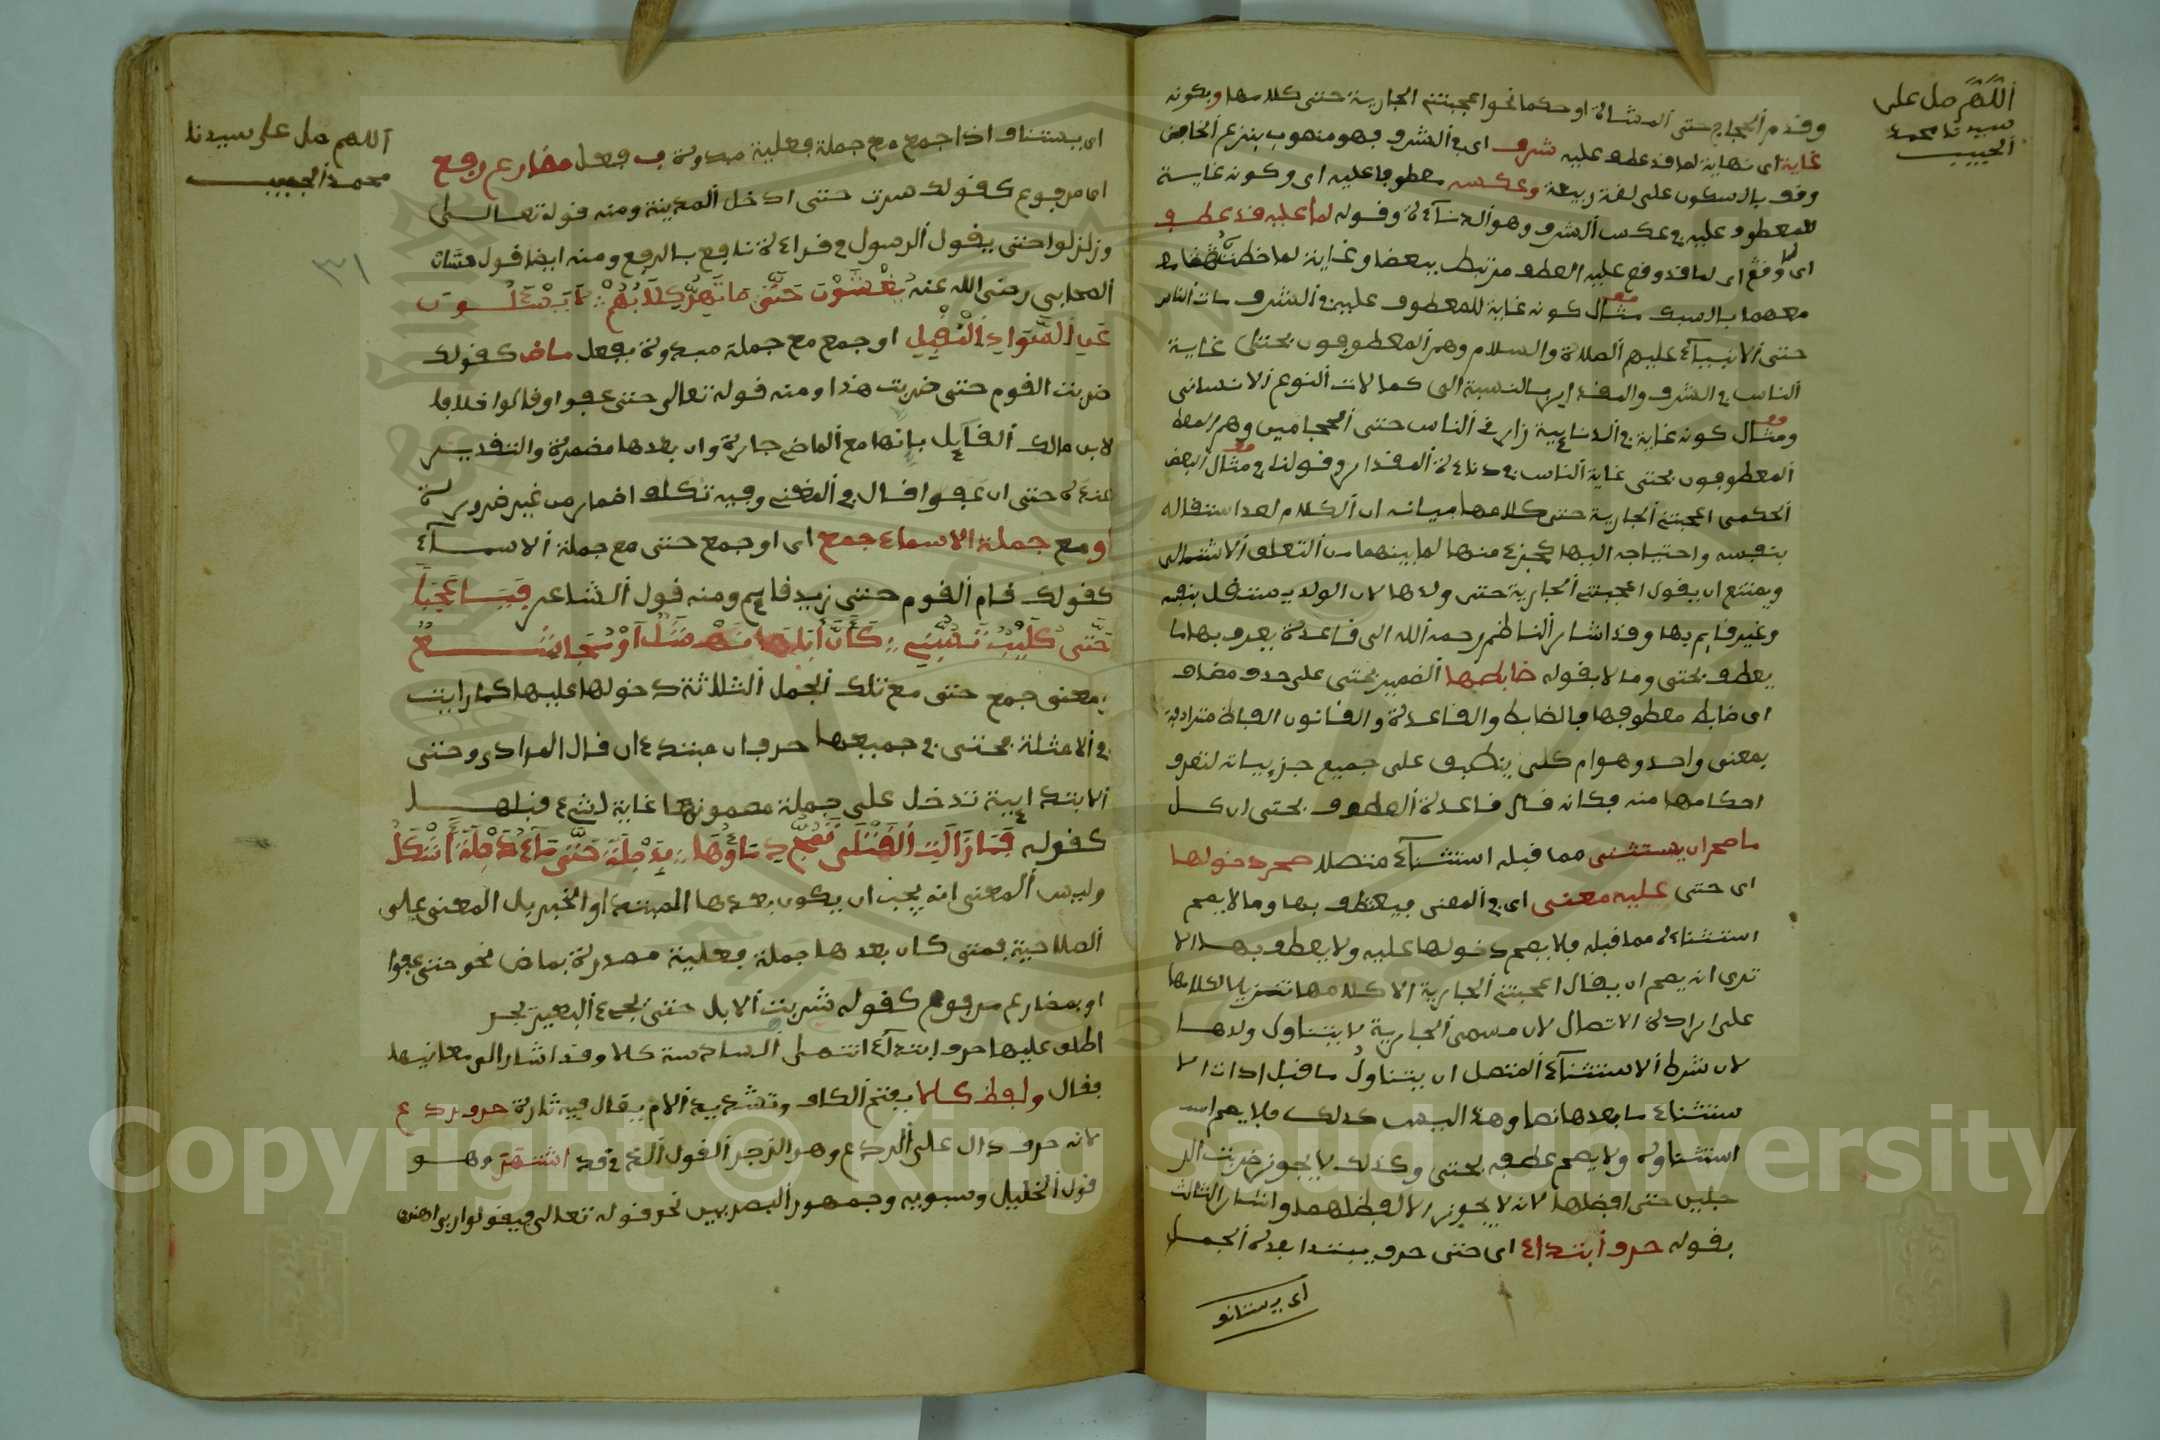 اللهم صل على
سيدنا محمد
الحبيب
وقدم الحجاج حتى المشاة او حكما نحو اعجبتني الجارية حتى كلامها وبكونه
غاية اى نهاية لما قد عطف عليه شرف اى في الشرف فهو منصوب بنزع الخافض
وقف بالسكون على لغة ربيعة وعكسه معطوفا عليه اى وكونه غاية
للمعطوف عليه في عكس الشرف وهو الدناءة وقوله لما عليه قد عطف
اى لما قد وقع عليه العطف مرتبط ببعضا وغاية
معهما بالسبك مثال كونه غاية للمعطوف عليه في الشرف مات الناس
حتى الانبياء عليهم الصلاة والسلام وهم المعطوفون بحتى غاية
الناس في الشرف والمقدار بالنسبة الى كمالات النوع الانسانى
ومثال كونه غاية في الدناءة زارنى الناس حتى الحجامين وهم
المعطوفون بحتى غاية الناس في دناءة المقدار وقولنا في مثال البعض
الحكمى اعجبتني الجارية حتى كلامها بيانه ان الكلام لعدم استقلاله
بنفسه واحتياجه اليها كجزء منها لما بينهما من التعلق الاشتمالى
ويمتنع ان يقول اعجبتني الجارية حتى ولدها لان الولد مستقل بنفسه
وغير قايم بها وقد اشار الناظم رحمه الله الى قاعدة يعرف بها ما
يعطف بحتى وما لا بقوله ضابطها الضمير لحتى على حذف مضاف
اى ضابط معطوفها فالضابط والقاعدة والقانون الفاظ مترادفة
بمعنى واحد وهو امر كلى ينطبق على جميع جزيياته لتعرف
احكامها منه فكانه قال قاعدة العطف بحتى ان كل
ما صح ان يستثنى مما قبله استثناء متصلا صح دخولها
اى حتى عليه معنى اى في المعنى فيعطف بها وما لا يصح
استثناءه مما قبله فلا يصح دخولها عليه ولا يعطف بها الا
ترى انه يصح ان يقال اعجبتني الجارية الا كلامها تنزيلا لكلامها
على ارادة الاتصال لان مسمى الجارية لا يتناول ولدها
لان شرط الاستثناء المتصل ان يتناول ما قبل ادات الا
ستثناء ما بعدها نصا وهذا ليس كذلك فلا يصح
استثناؤه ولا يصح عطفه بحتى وكذلك لا يجوز ضربت الر
جلين حتى افضلهما لانه لا يجوز الا افضلهما واشار الثالث
بقوله حرف ابتداء اى حتى حرف يبتدا بعده الجمل
اى يستانف
اللهم صل على سيدنا
محمد الحبيب
٣١
اى يستانف اذا جمع مع جملة فعلية مبدوة بفعل مضارع رفع
اى مرفوع كقولك سرت حتى ادخل المدينة ومنه قوله تعالى
وزلزلوا حتى يقول الرسول في قراءة نافع بالرفع ومنه ايضا قول حسان
الصحابى رضى الله عنه يغشون حتى ما تهر كلابهم لا يسئلون
عن السواد المقبل او جمع مع جملة مبدوة بفعل ماض كقولك
ضربت القوم حتى ضربت هذا ومنه قوله تعالى حتى عفوا وقالوا خلافا
لابن مالك القايل بانها مع الماضى جارة وان بعدها مضمرة والتقدير
عنده حتى ان عفوا قال في المغنى وفيه تكلف اضمار من غير ضرورة
او مع جملة الاسماء جمع اى او جمع حتى مع جملة الاسماء
كقولك قام القوم حتى زيد قايم ومنه قول الشاعر فيا عجبا
حتى كليب تسبنى كان اباها نهشل او مجاشع
ومعنى جمع حتى مع تلك الجمل الثلاثة دخولها عليها كما رايت
في الامثلة فحتى في جميعها حرف ابتداء قال المرادى وحتى
الابتدايية تدخل على جملة مضمونها غاية لشىء قبلها
كقوله فما زالت القتلى تمج دماؤها بدجلة حتى ماء دجلة اشكل
وليس المعنى انه يجب ان يكون بعدها المبتدا والخبر بل المعنى على
الصلاحية فمتى كان بعدها جملة فعلية مصدرة بماض نحو حتى عفوا
او بمضارع مرفوع كقوله شربت الابل حتى يجىء البعير يجر
اطلق عليها حرف ابتداء انتهى السادسة كلا وقد اشار الى معانيها
فقال ولفظ كلا بفتح الكاف وتشديد الام يقال فيه تارة حرف ردع
لانه حرف دال على الردع وهو الزجر القول الذى قد اشتهر وهو
قول الخليل وسيبويه وجمهور البصريين نحو قوله تعالى فيقول ربى اهنن
Copyright © King Saud University